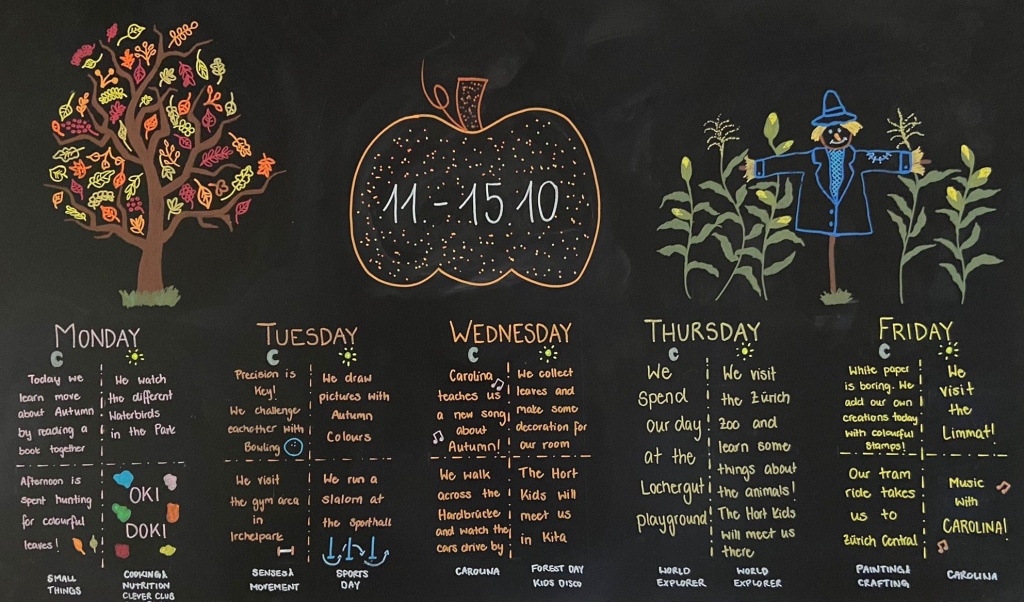 11 - 15 10
MONDAY
Today we
learn move
about Autumn
by reading a
book together
We watch
the different
Waterbirds
in the Park
Afternoon is
spent hunting
for colourful
leaves!
OKI
DOKI
SMALL
THINGS
COOKING &
NUTRITION
CLEVER CLUB
TUESDAY
Precision is
Key!
We challenge
eachother with
Bowling
We draw
pictures with
Autumn
Colours
We visit
the gym area
in
Irchelpark
We run a
slalom at
the sporthall
SENSES &
MOVEMENT
SPORTS
DAY
WEDNESDAY
Carolina
teaches us
a new song
about
Autumn!
We collect
leaves and
make some
decoration for
our room
We walk
across the
Hardbrücke
and watch the
cars drive by
The Hort
Kids will
meet us
in Kita
CAROLINA
FOREST DAY
KIDS DISCO
THURSDAY
We
spend
our day
at the
Lochergut
playground
We visit
the Zürich
Zoo and
learn some
things about
the animals!
The Hort Kids
will meet us
there
WORLD
EXPLORER
WORLD
EXPLORER
FRIDAY
White paper
is boring. We
add our own
creations today
with colourful
stamps!
We
visit
the
Limmat!
Our tram
ride takes
us to
Zürich Central
Music
with
CAROLINA!
PAINTING &
CRAFTING
CAROLINA